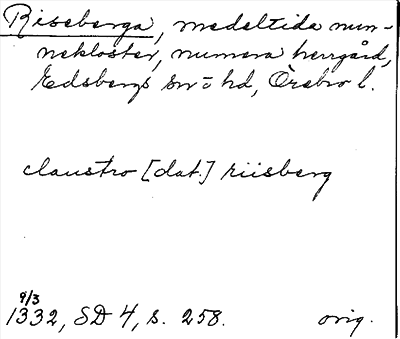 Riseberga, medeltida nun-
nekloster, numera herrgård,
Edsbergs sn o hd, Örebro l.
claustro [dat.] riisberg
9/3
1332, SD 4, s. 258. orig.